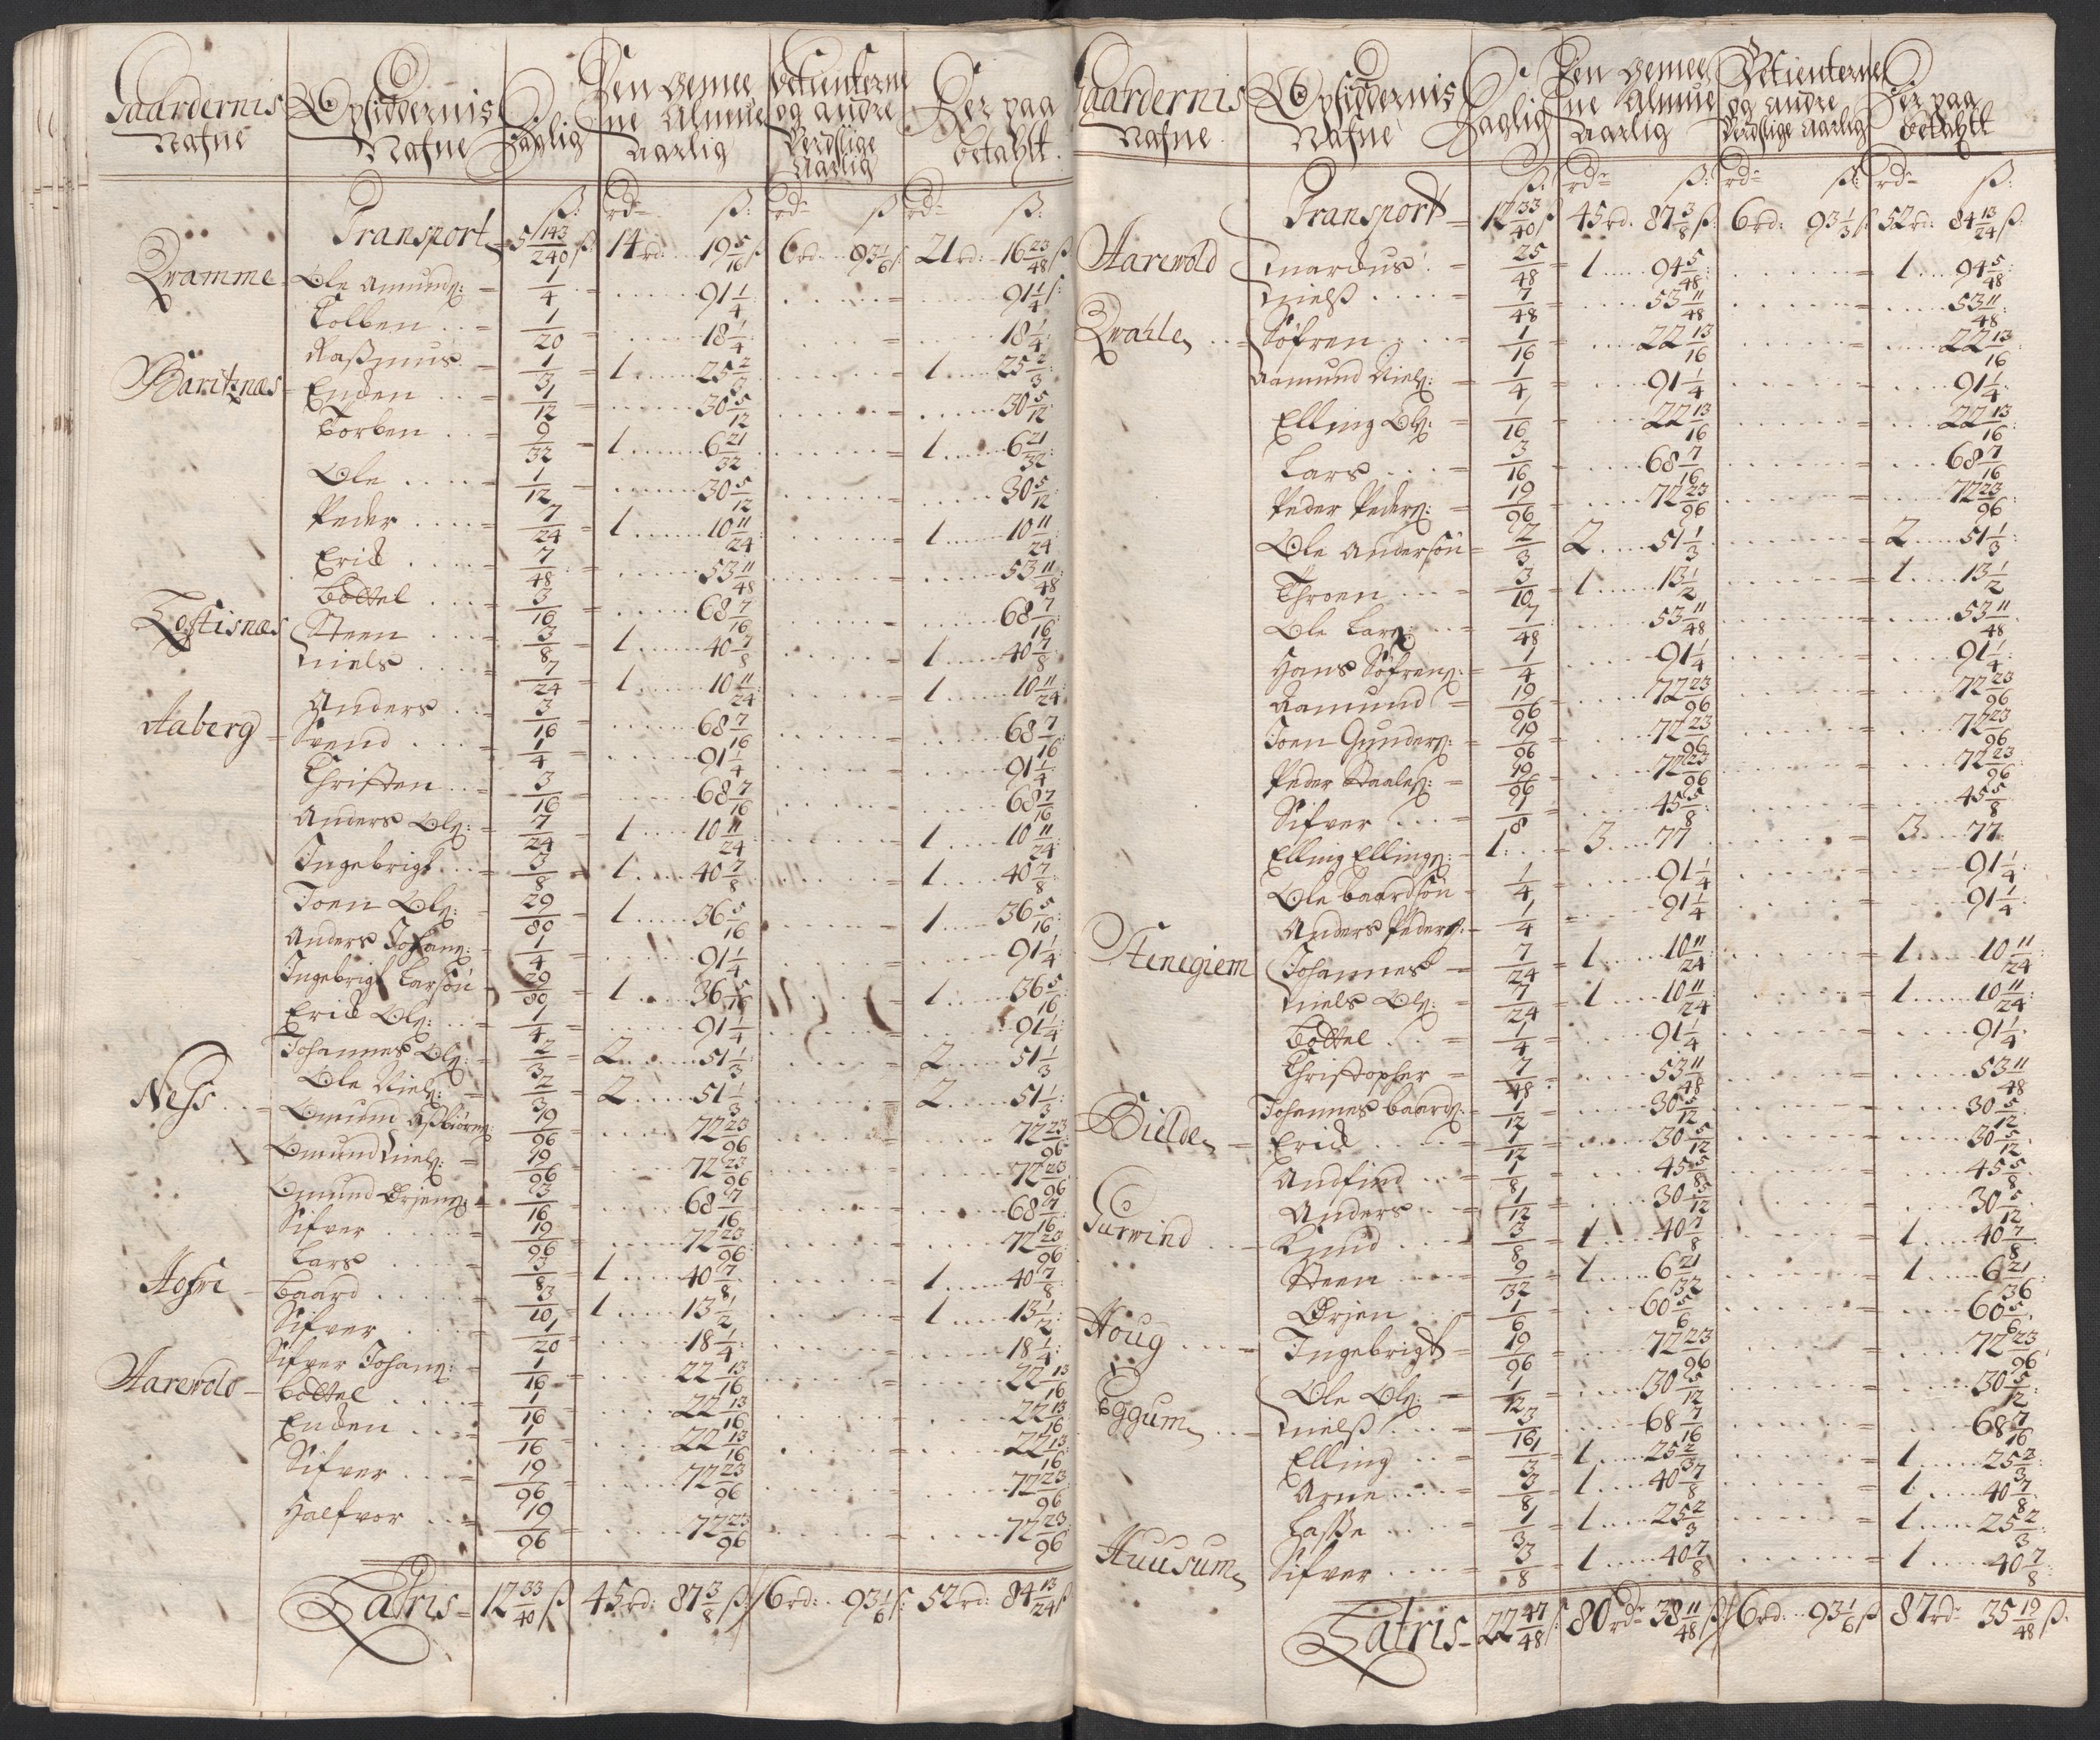 Gaardernis Nafne | Opsiddernis Nafne | Daglig | Den Gemee ne Almue Aarlig | Betienterne og andre Verdslige Aarlig | Der paa betahlt
ß: | rd ß: | rd ß | rd ß:
Transport = 5 143/240 ß | 14 rd: 19 5/16 ß | 6 rd: 93 1/6 ß: | 21 rd: 16 23/48 ß
Qvamme - Ole Amunds: = 1/4 = 91 1/4 = 91 1/4 ß:
Colben = 1/20 = 18 1/4 = 18 1/4:
Rasmus = 1/3 = 1 25 2/3 = 1 25 2/3:
Baritznæs - Enden = 1/12 = 30 5/12 = 30 5/12:
Torben = 9/32 = 1 6 21/32 = 1 6 21/32:
Ole = 1/12 = 30 5/12 = 30 5/12:
Peder = 7/24 = 1 10 11/24 = 1 10 11/24:
Erick = 7/48 = 53 11/48 = 53 11/48
Bottel = 3/16 = 68 7/16 = 68 7/16:
Toftisnæs Steen = 3/8 = 1 40 7/8 = 1 40 7/8:
Niels = 7/24 = 1 10 11/24 = 1 10 11/24:
Anders = 3/16 = 68 7/16 = 68 7/16
Aaberg - Svend = 1/4 = 91 1/4 = 91 1/4:
Christen = 3/16 = 68 7/16 = 68 7/16
Anders Ols: = 7/24 = 1 10 11/24 = 1 10 11/24:
Ingebrigt = 3/8 = 1 40 7/8 = 1 40 7/8:
Joen Ols: = 29/80 = 1 36 5/16 = 1 36 5/16:
Anders Johans: = 1/4 = 91 1/4 = 91 1/4:
Ingebrigt Larsøn = 29/80 = 1 36 5/16 = 1 36 5/16
Erick Ols: = 1/4 = 91 1/4 = 91 1/4:
Johannes Ols: = 2/3 = 2 51 1/3 = 2 51 1/3
Ness - Ole Niels: = 2/3 = 2 51 1/3 = 2 51 1/3:
Omund Asbiørns: 19/96 = 72 23/96 = 72 23/96:
Omund Niels: = 19/96 = 72 23/96 = 72 23/96
Omund Ørjens: = 3/16 = 68 7/16 = 68 7/16:
Sifver = 19/96 = 72 23/96 = 72 23/96
Lars = 3/8 = 1 40 7/8 = 1 40 7/8:
Hofri - Baard = 3/10 = 1 13 1/2 = 1 13 1/2:
Sifver = 1/20 = 18 1/4 = 18 1/4:
Sifver Johans: = 1/16 = 22 13/16 = 22 13/16
Aarevold - Bottel = 1/16 = 22 13/16 = 22 13/16
Enden = 1/16 = 22 13/16 = 22 13/16
Sifver = 19/96 = 72 23/96 = 72 23/96:
Halfvor = 19/96 = 72 23/96 = 72 23/96
Latris = 12 33/40 ß | 45 rd: 87 3/8 ß: | 6 rd: 93 1/6 ß: | 52 rd: 84 13/24 ß
Gaardernis Nafne | Opsiddernis Nafne | Daglig | Den Gemee ne Almue Aarlig | Betienterne og andre Verdslige Aarlig | Der paa betahlt
ß: | rd ß: | rd ß: | rd ß:
Transport = 12 33/40 ß | 45 rd. 87 3/8 ß: | 6 rd: 93 1/3 ß: | 52 rd: 84 13/24 ß:
Aarevold Mardus = 25/48 = 1 94 5/48: = 1 94 5/48:
Nielß = 7/48 = 53 11/48 = 53 11/48:
Qvahle = Søfren = 1/16 = 22 13/16 = 22 13/16
Aamund Niels: = 1/4 = 91 1/4 = 91 1/4:
Elling Ols: = 1/16 = 22 13/16 = 22 13/16:
Lars = 3/16 = 68 7/16 = 68 7/16
Peder Peders: = 19/96 = 72 23/96 = 72 23/96:
Ole Andersøn = 2/3 2 51 1/3 = 2 51 1/3:
Throen = 3/10 = 1 13 1/2 = 1 13 1/2
Ole Lars: = 7/48 53 11/48 = 53 11/48.
Hans Søfrens: = 1/4 91 1/4 = 91 1/4:
Aamund = 19/96 = 72 23/96 = 72 23/96
Joen Gunders: = 19/96 = 72 23/96 = 72 23/96
Peder Staales: = 19/96 = 72 23/96 = 72 23/96:
Sifver = 1/8 = 45 5/8 = 45 5/8
Elling Ellings: = 1 = 3 77 = 3 77:
Ole Baardsøn = 1/4 = 91 1/4 = 91 1/4:
Anders Peders: = 1/4 = 91 1/4 = 91 1/4:
Stenegiem Johannes = 7/24 = 1 10 11/24 = 1 10 11/24:
Niels Ols: = 7/24 = 1 10 11/24 = 1 10 11/24:
Bottel = 1/4 = 91 1/4 = 91 1/4:
Christopher = 7/48 = 53 11/48 = 53 11/48
Bielde - Johannes Baards: = 1/12 = 30 5/12 = 30 5/12:
Erick = 1/12 = 30 5/12 = 30 5/12.
Andfind = 1/8 = 45 5/8 = 45 5/8:
Anders = 1/12 = 30 5/12 = 30 5/12
Surwind - Knud = 3/8 = 1 40 7/8 = 1 40 7/8:
Steen = 9/32 = 1 6 21/32 = 1 6 21/36
Ørjen = 1/6 = 60 5/6 = 60 5/6:
Houg - Ingebrigt = 19/96 = 72 23/96 = 72 23/96:
Ole Ols: = 1/12 = 30 5/12 = 30 5/12:
Eggum - Nielß = 3/16 = 68 7/16 = 68 7/16
Elling = 1/3 = 1 25 2/3 = 1 25 2/3:
Arne = 3/8 = 1 40 7/8 = 1 40 7/8:
Lasse = 1/3 = 1 25 2/3 = 1 25 2/3:
Huusum Sifver = 3/8 = 1 40 7/8 = 1 40 7/8:
Latris = 22 47/48 ß: | 80 rd 38 11/48 ß: | 6 rd: 93 1/6 ß | 87 rd 35 19/48 ß: